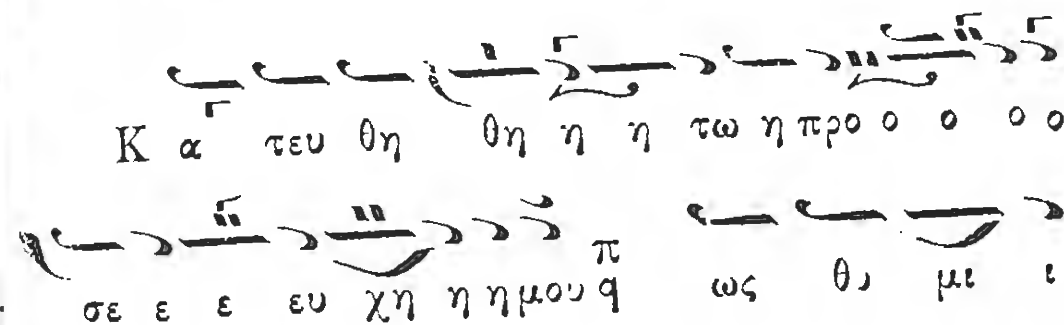 Κ α τευ θη θη η η τω η προ ο ο ο ο
σε ε ε ευ χη η η μου π q ως θυ μι ι